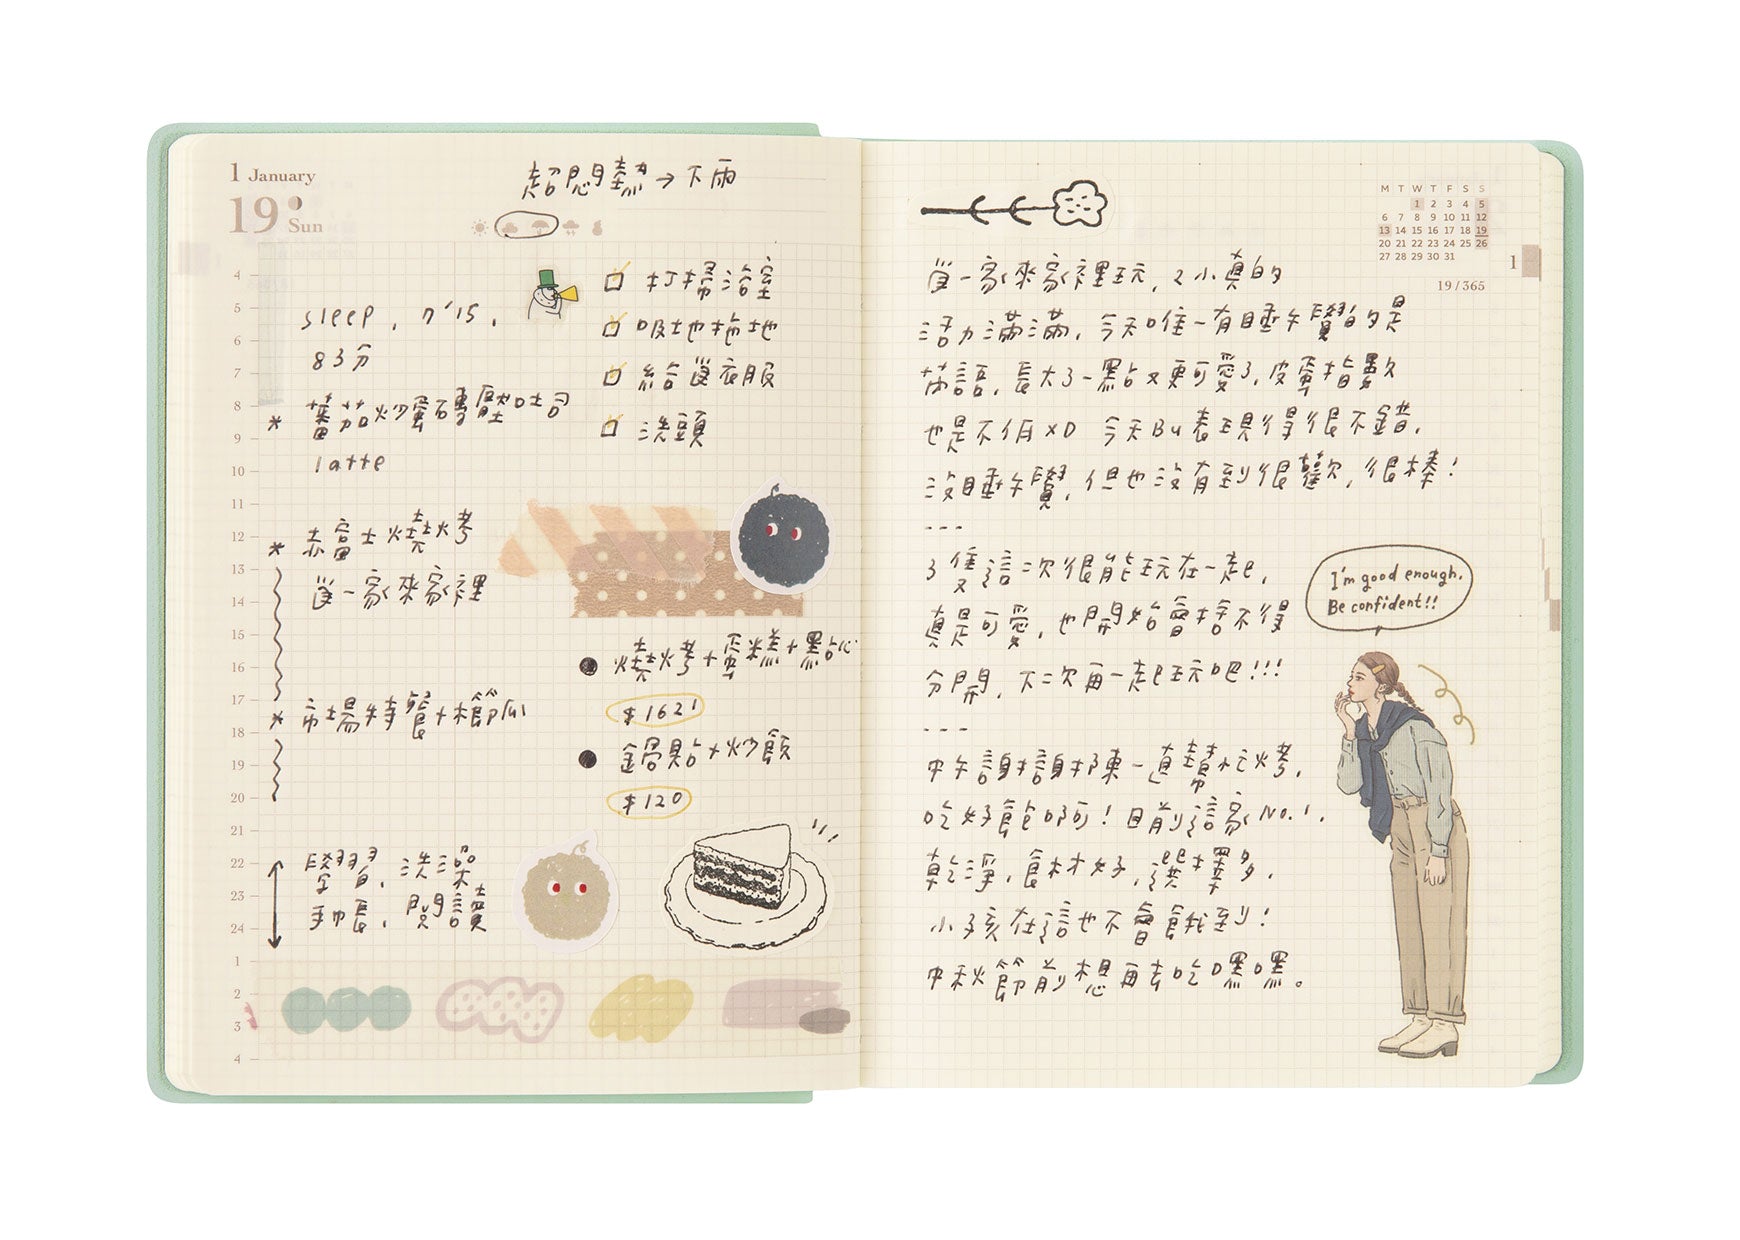 1 January
19 Sun
超悶熱→下雨
4
5
6
7
8
9
10
11
12
13
14
15
16
17
18
19
20
21
22
23
24
1
2
3
4
sleep, 7'15,
83分
* 蕃茄炒蛋磚壓吐司
latte
* 赤富士燒烤
一家來家裡
* 市場特餐+櫛瓜
學習, 洗澡
手帳, 閱讀
打掃浴室
吸地拖地
給 衣服
洗頭
燒烤+蛋糕+點心
$1621
鍋貼+炒飯
$120
M T W T F S S
1 2 3 4 5
6 7 8 9 10 11 12
13 14 15 16 17 18 19
20 21 22 23 24 25 26
27 28 29 30 31
1
19/365
一家來家裡玩, 2小真的
活力滿滿, 今天唯一有睡午覺的是
苗語, 長大了一點又更可愛了, 皮蛋指數
也是不低XD 今天Bu表現得很不錯,
沒睡午覺, 但也沒有到很歡, 很棒!
---
3隻這次很能玩在一起,
真是可愛, 也開始會捨不得
分開, 下次再一起玩吧!!!
---
中午謝謝陳一直幫忙烤,
吃好飽啊! 目前這家No.1,
乾淨, 食材好, 選擇多,
小孩在這也不會餓到!
中秋節前想再去吃嘿嘿。
I'm good enough.
Be confident!!